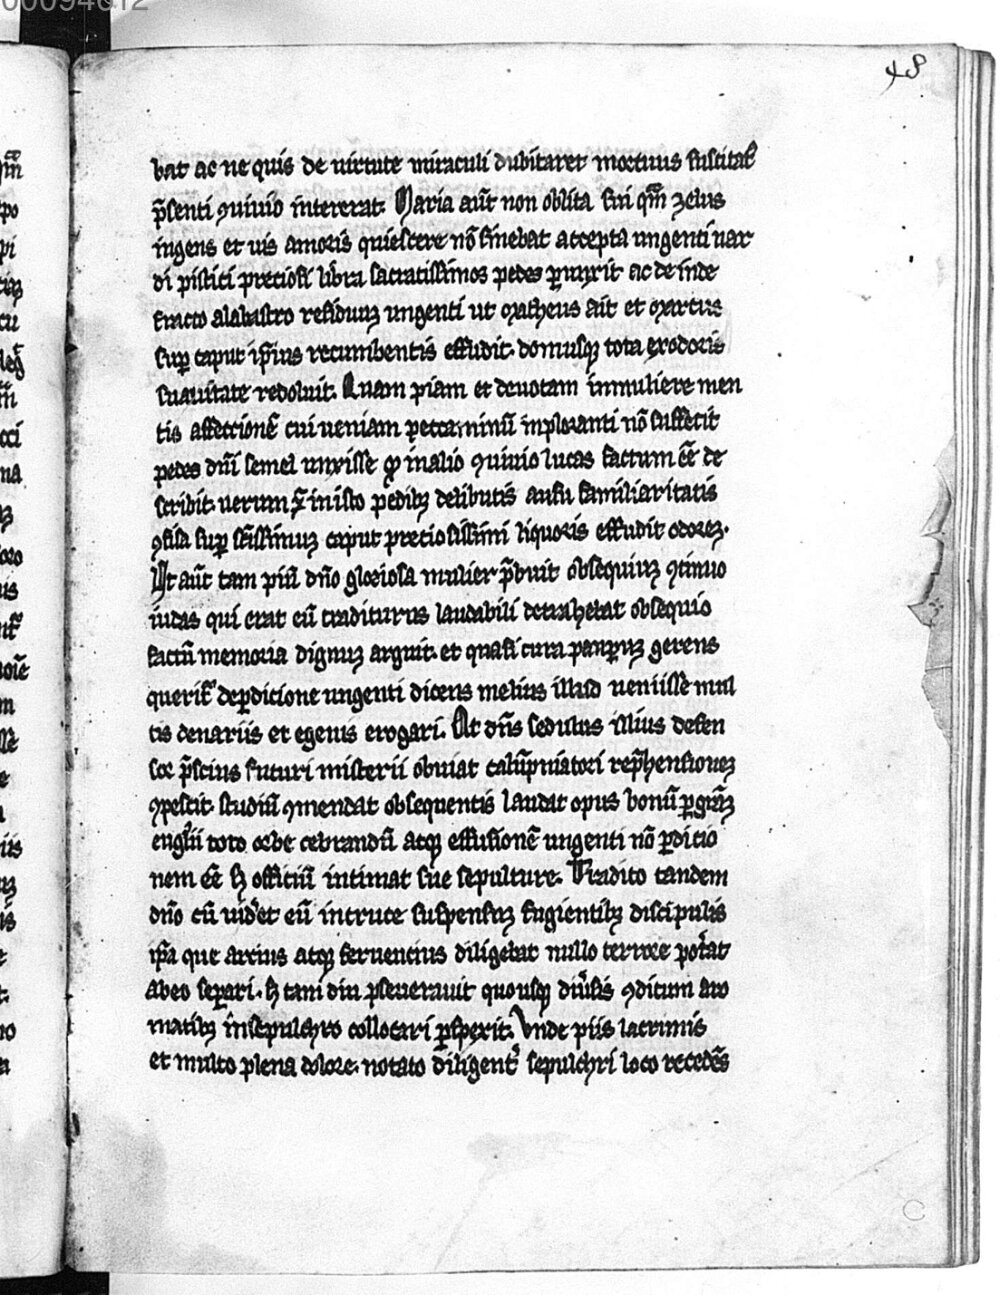 00094612
48
bat ac ne quis de uirtute miraculi dubitaret mortuus suscitatꝰ
p̄senti ꝯuiuio intererat. Maria aūt non oblita sui qm̄ zelus
ingens et uis amoris quiescere nō sinebat accepta ungenti nar
di pistici preciosi libra sacratissimos pedes ꝑunxit ac de inde
fracto alabastro residuuꝫ ungenti ut Matheus ait et Marcus
suꝑ caput ip̄ius recumbentis effudit. domusqꝫ tota ex odoris
suauitate redoluit. Quam piam et deuotam in muliere men
tis affectionē cui ueniam peccaminū inploranti nō suffecit
pedes dn̄i semel unxisse qd̓ in alio ꝯuiuio lucas factum eē de
scribit. uerum in isto pedibꝫ delibutis ausu familiaritatis
ꝯfisa suꝑ sc̄issimuꝫ caput preciosissimi liquoris effudit odoreꝫ.
Ut aūt tam piū dn̄o gloriosa mulier p̄buit obsequiuꝫ ꝯtinuo
iudas qui erat eū traditurus laudabili detrahebat obsequio
factū memoria dignuꝫ arguit. et quasi cura pauꝑuꝫ gerens
querit᷑ de ꝑdicione ungenti dicens melius illud ueniisse mul
tis denariis et egenis erogari. At dn̄s sedulus illius defen
sor p̄scius futuri misterii obuiat calūpniatori rep̄hensioneꝫ
ꝯpescit. studiū ꝯmendat obsequentis laudat opus bonū ꝑ gr̄aꝫ
eng̓lii toto orbe cebrandū atqꝫ effusionē ungenti nō ꝑditio
nem eē sꝫ officiū intimat sue sepulture. Tradito tandem
dn̄o cū uid̓et eū in cruce suspensuꝫ fugientibꝫ discipulis
ip̄a que arcius atqꝫ feruencius diligebat nullo terrore pot̓at
ab eo seꝑari. sꝫ tam diu ꝑseuerauit quousqꝫ diu̓sis ꝯditum aro
matibꝫ in sepulchro collocari ꝑspexit. Vnde piis lacrimis
et multo plena dolore. notato diligent̓ sepulchri loco recedēs